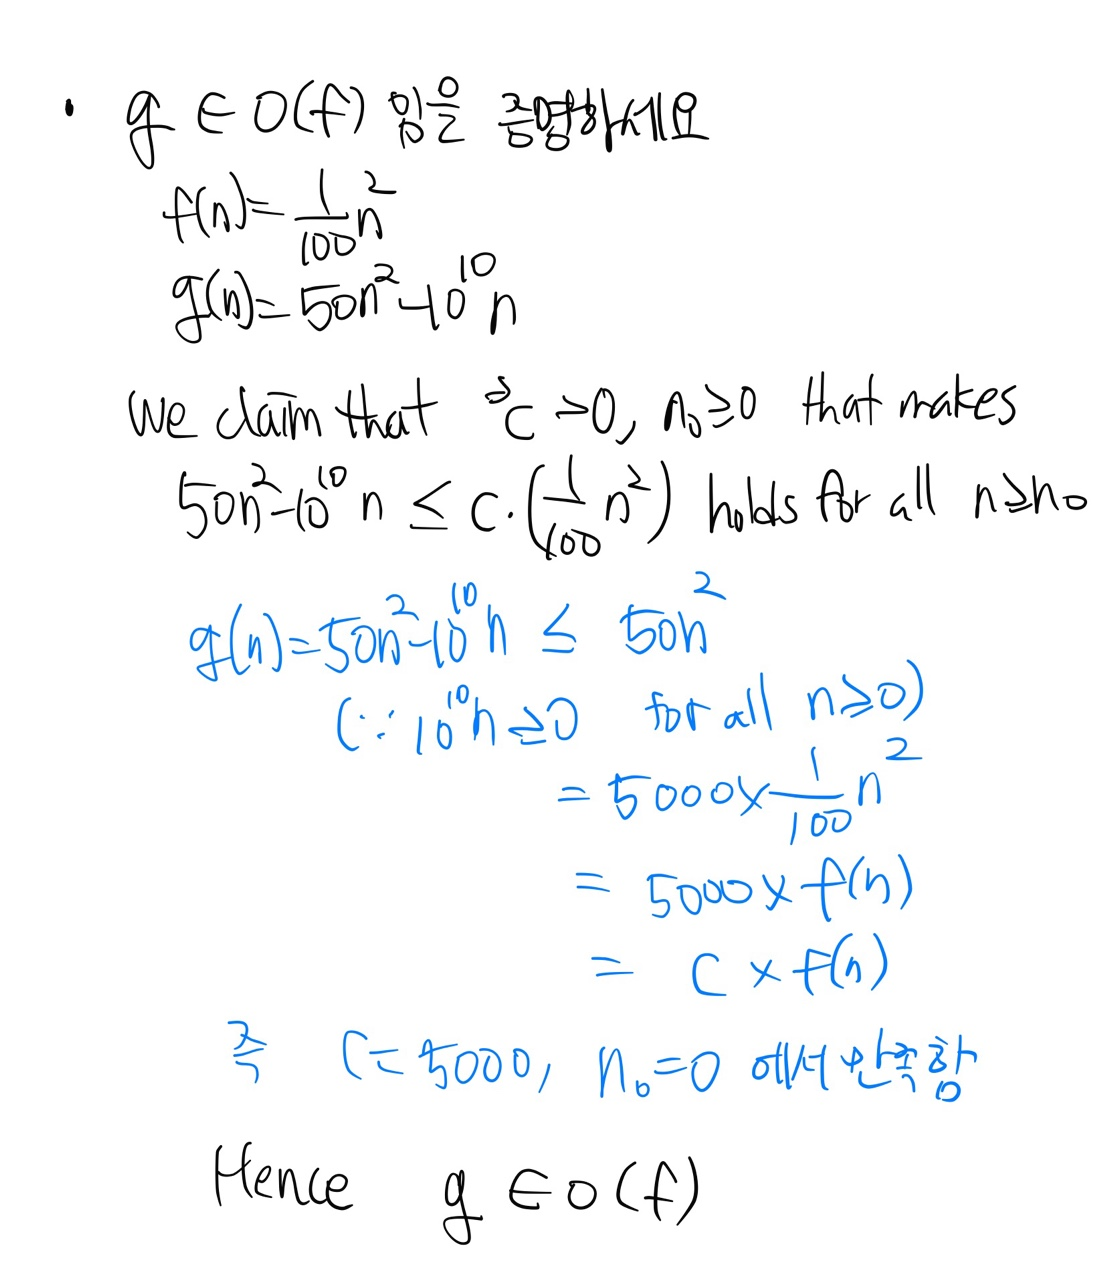 • g ∈ O(f) 임을 증명하세요
f(n) = 1/100 n²
g(n) = 50n² - 10¹⁰ n
We claim that ∃c > 0, n₀ ≥ 0 that makes
50n² - 10¹⁰ n ≤ c · (1/100 n²) holds for all n ≥ n₀
g(n) = 50n² - 10¹⁰ n ≤ 50n²
(∵ 10¹⁰ n ≥ 0 for all n ≥ 0)
= 5000 × 1/100 n²
= 5000 × f(n)
= C × f(n)
즉 C = 5000, n₀ = 0 에서 만족함
Hence g ∈ O(f)